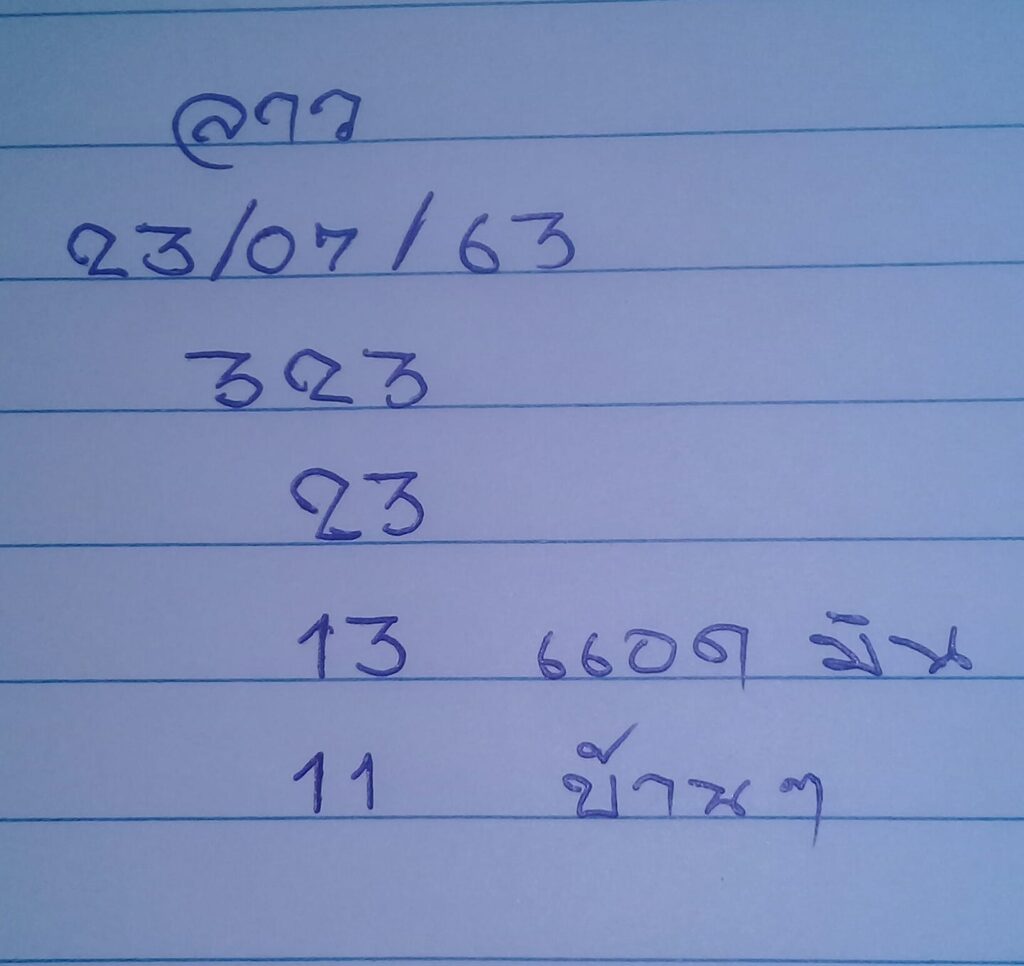 ลาว
23/07/63
323
23
13 แอด มิน
11 บ้านๆ